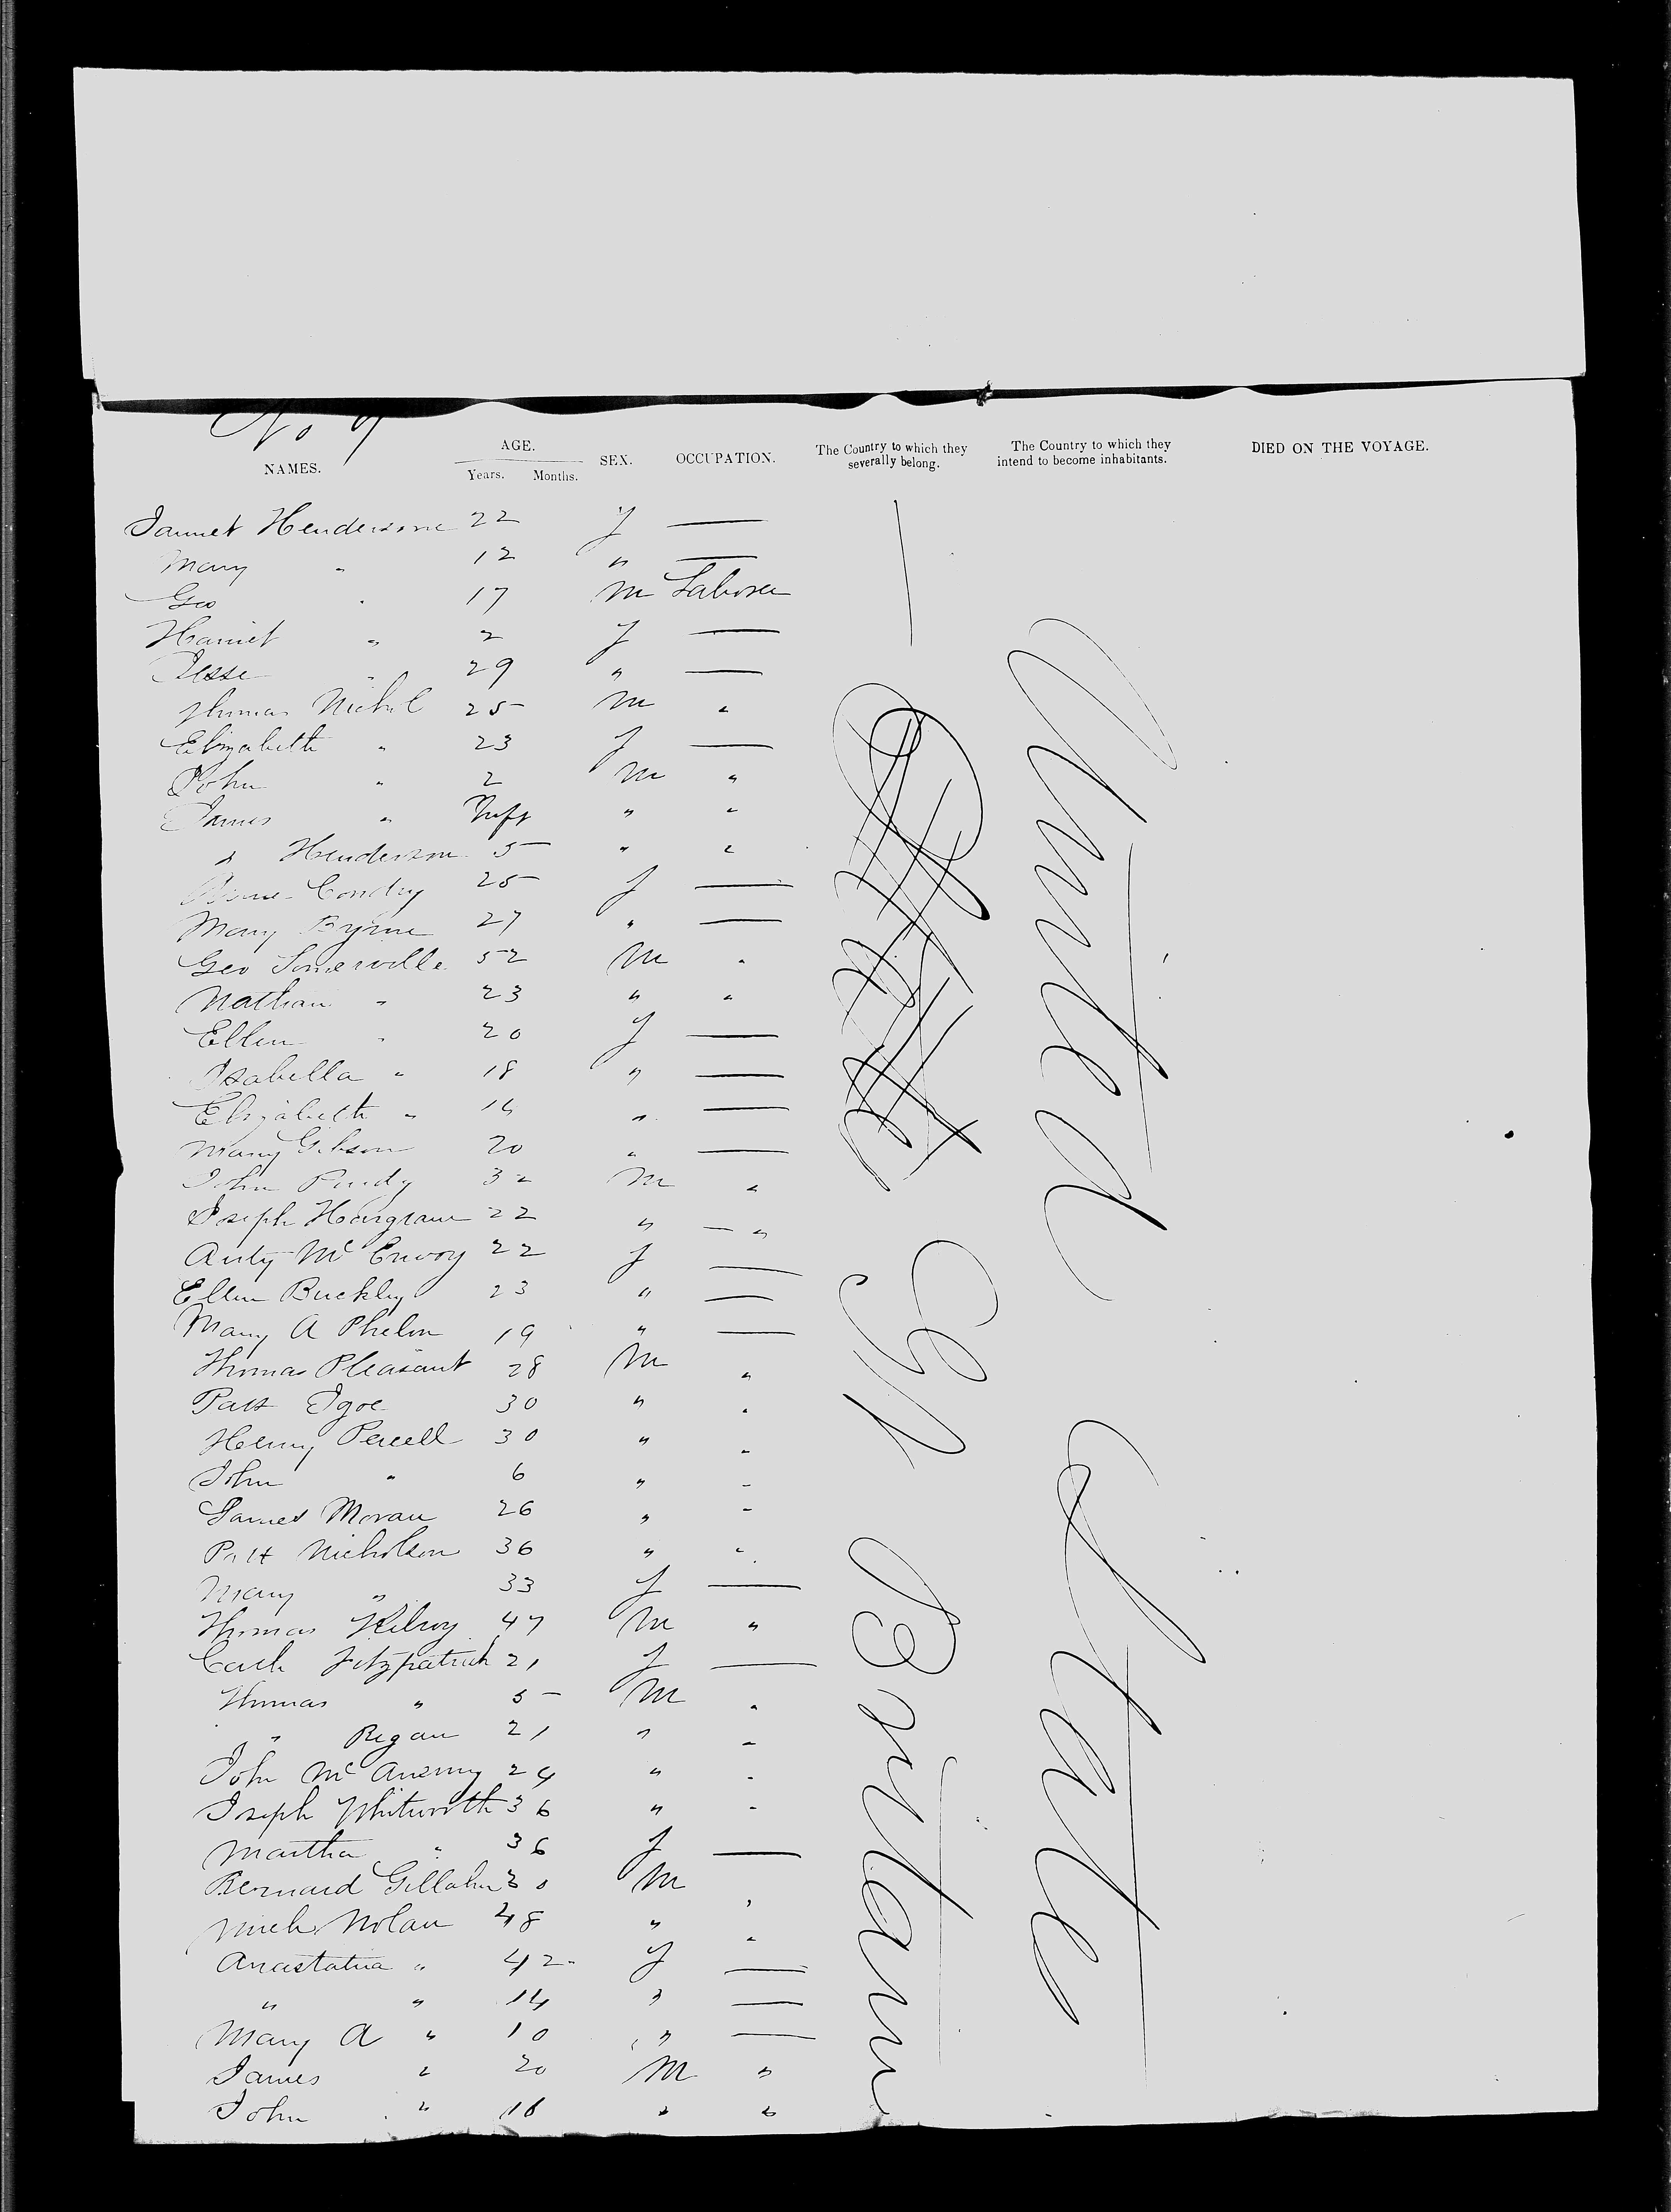 No 9
NAMES. AGE. Years. Months. SEX. OCCUPATION. The Country to which they severally belong. The Country to which they intend to become inhabitants. DIED ON THE VOYAGE.
Jannet Henderson 22 f —
Mary " 12 " —
Geo " 17 M Laborer
Harriet " 2 f —
Jesse " 29 " —
Thomas Nichol 25 M "
Elizabeth " 23 f —
John " 2 M "
James " Inft " "
" Henderson 5 " "
Condry 25 f —
Mary Byrne 27 " —
Geo Somerville 52 M "
Nathan " 23 " "
Ellen " 20 f —
Isabella " 18 " —
Elizabeth " 16 " —
Mary Gibson 20 " —
John Purdy 32 M "
Joseph Hargrave 22 " — "
Anty McEnvoy 22 f —
Ellen Buckley 23 " —
Mary A Phelon 19 " —
Thomas Pleasant 28 M "
Patt Igoe 30 " "
Henry Percell 30 " "
John " 6 " "
James Moran 26 " "
Patt Nicholson 36 " "
Mary " 33 f —
Thomas Kilroy 47 M "
Cath Fitzpatrick 21 f —
Thomas " 5 M "
" Regan 21 " "
John Mc 24 " "
Joseph Whitworth 36 " "
Martha " 36 f —
Bernard 30 M "
Mich Nolan 48 " "
Anastatia " 42 f —
" " 14 " —
Mary A " 10 " —
James " 20 M "
John " 16 " "
Gt Britain
United State